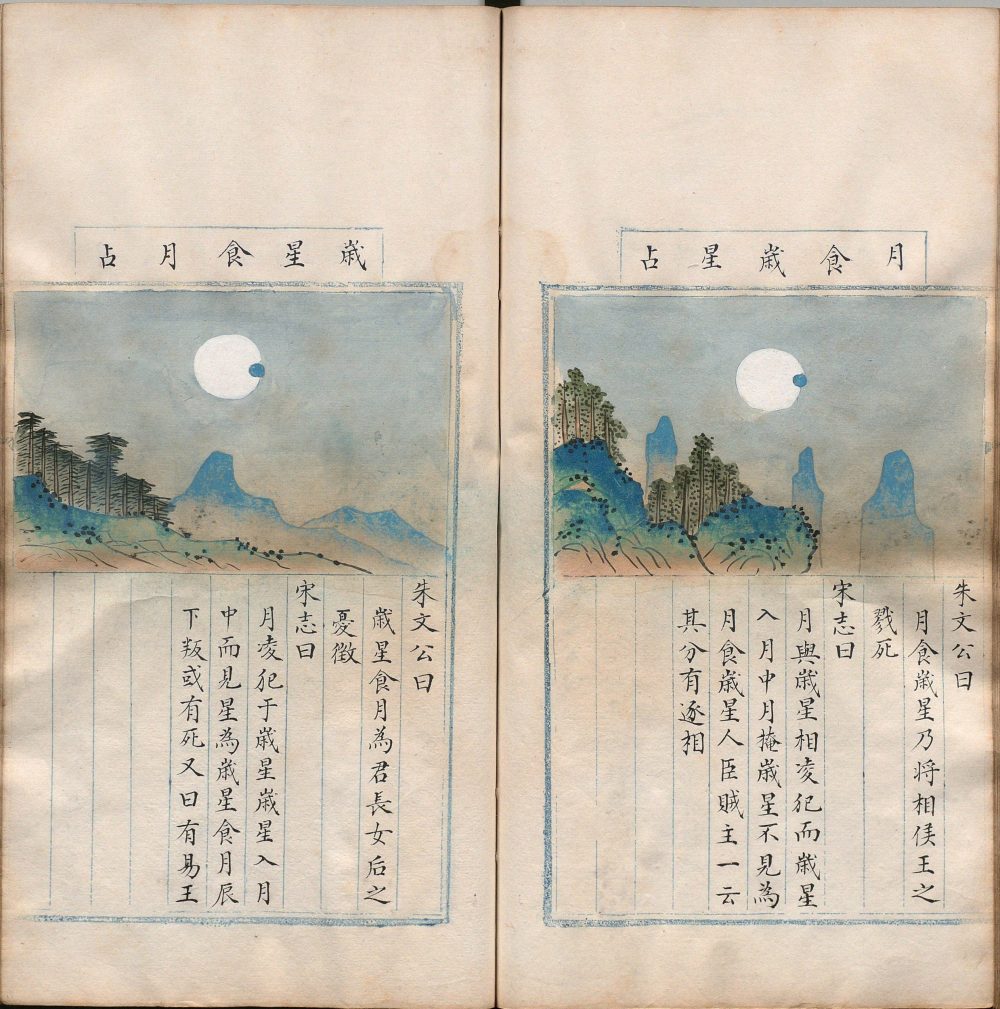 月食歲星占
朱文公曰
月食歲星乃將相侯王之
戮死
宋志曰
月與歲星相凌犯而歲星
入月中月掩歲星不見為
月食歲星人臣賊主一云
其分有逐相
歲星食月占
朱文公曰
歲星食月為君長女后之
憂徵
宋志曰
月凌犯于歲星歲星入月
中而見星為歲星食月辰
下叛或有死又曰有易王